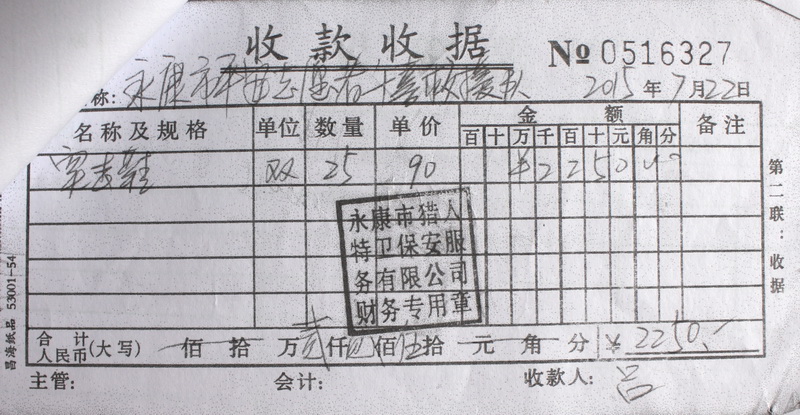 收款收据
№ 0516327
称: 永康市平安志愿者十喜救援队 2015 年 7 月 22 日
名称及规格 单位 数量 单价 金额 备注
百 十 万 千 百 十 元 角 分
鞋 双 25 90 ¥ 2 2 5 0 0 0
永康市猎人
特卫保安服
务有限公司
财务专用章
合计人民币(大写) 佰 拾 万 贰 仟 贰 佰 伍 拾 元 角 分 ¥ 2250.-
主管: 会计: 收款人: 吕
第二联:收据
昌海纸品 53001-54